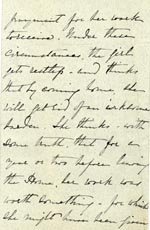 payment for her work
to receive. Under these
circumstances, the girl
gets restless - and thinks
that by coming home she
will get rid of an irksome
burden. She thinks - with
some truth, that for a
year or two before leaving
the Home, her work was
worth something - for which
she might have been given